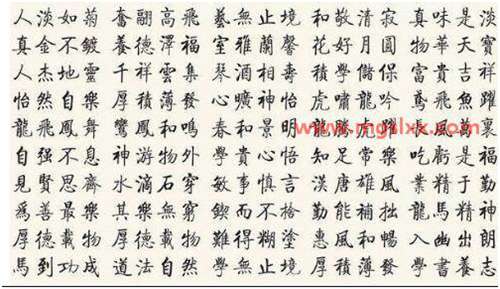 人淡如菊 奮翮高飛 藝無止境 和敬清寂 真味是淡
真金不鍍 養德澤福 室雅蘭馨 花好月圓 物華天寶
人杰地靈 千祥雲集 琴酒相壽 積學儲保 富貴吉祥
怡然自樂 厚積薄發 心曠神怡 虎嘯龍吟 鳶飛魚躍
龍飛鳳舞 鸞鳳和鳴 春和景明 龍
自強不息 神游物外 學貴心悟 知足常樂 吃虧是福
見賢思齊 水滴石穿 敏事慎言 漢唐雄風 業精于勤
爲善最樂 其樂無窮 鍥而不捨 勤能補拙 龍馬精神
厚德載物 厚德載物 難得糊塗 惠風和暢 入幽出朗
馬到功成 道法自然 學無止境 厚積薄發 學書養志